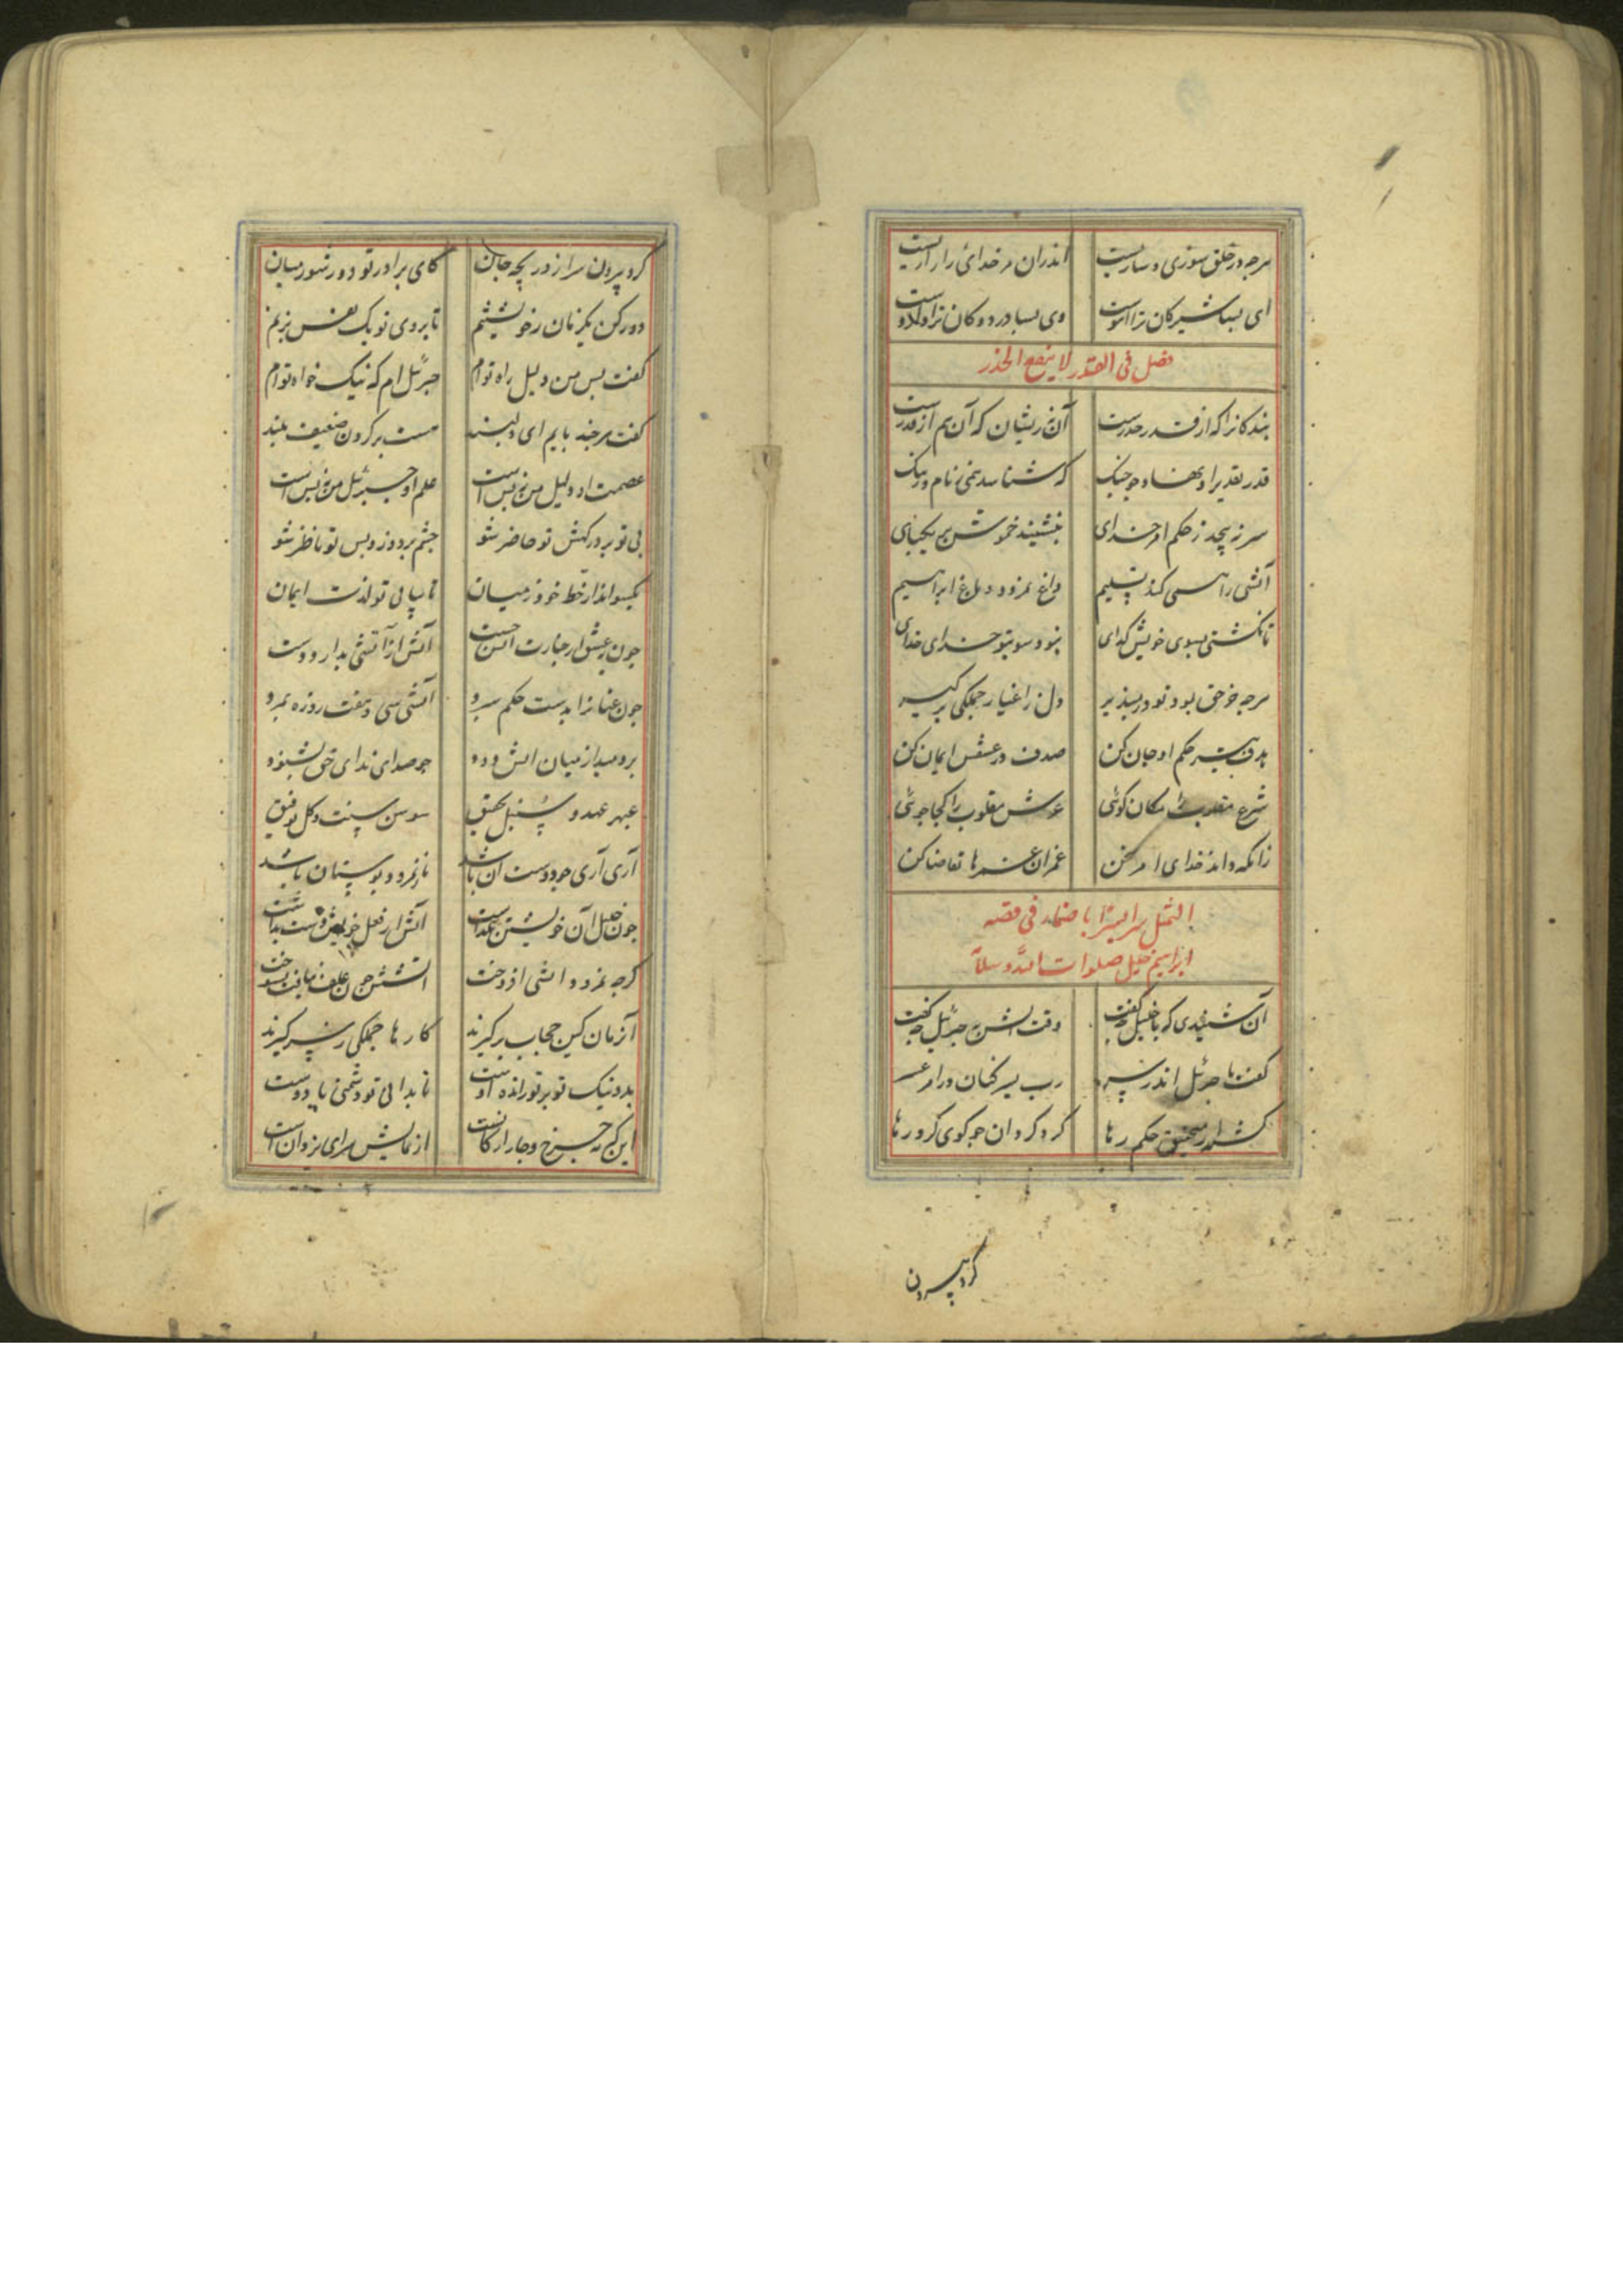 هرچه در خلق سوزی و سازیست اندران مر خدای را رازیست
ای بسا شیر کان ترا آهوست وی بسا درد کان ترا داروست
فصل فی القدر لا ینفع الحذر
بندکانرا که از قدر حذرست آن نه زیشان که آن هم از قدرست
قدر تقدیر او نهاد و چو چنک که شناسد همی ز نام و ز ننک
سر نپیچد ز حکم امر خدای بنشیند خموش بر یکجای
آتشی را همی کند تسلیم داغ نمرود و باغ ابراهیم
تا نکشتی بسوی خویش کدای نبود سوی تو خدای خدای
هرچه جز حق بود تو در مپذیر دل ز اغیار جملکی برکیر
هدف تیر حکم او جان کن صدف در عشقش ایمان کن
شرع مقلوب را مکان کوئی عرش مقلوب را کجا جوئی
زانکه داند خدای امر کن عمران عمرها تقاضا کن
التمثیل فی قصه
ابراهیم خلیل صلوات الله و سلامه
آن شنیدی که با خلیل چه کفت وقت آتش به جبرئیل چه کفت
کفت با جبرئیل اندر سر رب یسر کنان در امر عسر
کشته از منجنیق حکم رها کرد کردان چو کوی کرد رها
کرد بیرون
کرد بیرون سر از دریچه جان کای برادر تو دور شو ز میان
دور کن یکزمان ز خویشتنم تا بروی تو یک نفس بزنم
کفت بس من دلیل راه توام جبرئیل ام که نیک خواه توام
کفت هرچند بایم ای دلبند هست بر کردن ضعیف بلند
عصمت او دلیل من نه بس است علم او جبرئیل من نه بس است
بی تو بر درکهش تو حاضر شو چشم بردوز و بس تو ناظر شو
یکسو انداز خط خود ز میان تا بیابی تو لذت ایمان
چون ز عشق اختیارت آتش جست آتش از آتشی بدارد دست
چون عنانرا بدست حکم سپرد آتشی سی و هفت روزه بمرد
بردمید از میان آتش و دود چو صدای ندای حق بشنود
عبهر عهد و سنبل تحقیق سوسن سنت و کل توفیق
آری آری چو دوست آن باشد نار نمرود بوستان باشد
چون خلیل آن خویشتن بکذاشت آتش از فعل خویش دست بداشت
کرچه نمرود آتشی افروخت آتشش چون علف نیافت بسوخت
آنزمان کین حجاب برکیرند کارها جملکی ز سر کیرند
بد و نیک تو بر تو رانده اوست تا بدانی تو دشمنی یا دوست
این که نه چرخ و چار ارکانست آزمایش سرای یزدان است